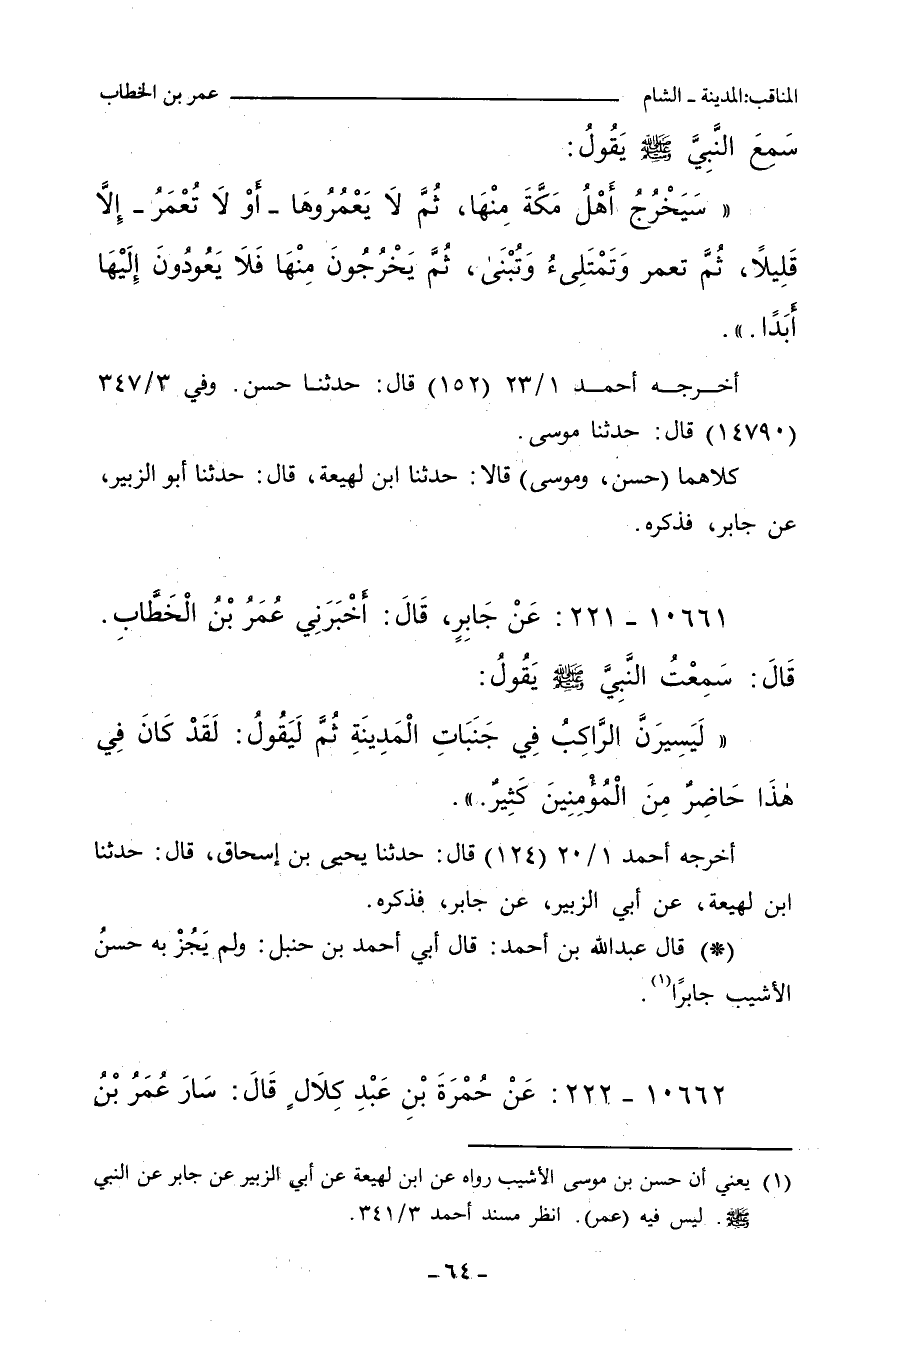 المناقب:المدينة ـ الشام عمر بن الخطاب
سَمِعَ النَّبِيَّ ﷺ يَقُولُ:
« سَيَخْرُجُ أَهْلُ مَكَّةَ مِنْهَا، ثُمَّ لَا يَعْمُرُوهَا ـ أَوْ لَا تُعْمَرُ ـ إِلَّا
قَلِيلًا، ثُمَّ تعمر وَتَمْتَلِىءُ وَتُبْنَىٰ، ثُمَّ يَخْرُجُونَ مِنْهَا فَلَا يَعُودُونَ إِلَيْهَا
أَبَدًا.».
أخـرجـه أحمـد ٢٣/١ (١٥٢) قال: حدثنا حسن. وفي ٣٤٧/٣
(١٤٧٩٠) قال: حدثنا موسى.
كلاهما (حسن، وموسى) قالا: حدثنا ابن لهيعة، قال: حدثنا أبو الزبير،
عن جابر، فذكره.
١٠٦٦١ ـ ٢٢١: عَنْ جَابِرٍ، قَالَ: أَخْبَرَنِي عُمَرُ بْنُ الْخَطَّابِ.
قَالَ: سَمِعْتُ النَّبِيَّ ﷺ يَقُولُ:
« لَيَسِيرَنَّ الرَّاكِبُ فِي جَنَبَاتِ الْمَدِينَةِ ثُمَّ لَيَقُولُ: لَقَدْ كَانَ فِي
هٰذَا حَاضِرٌ مِنَ الْمُؤْمِنِينَ كَثِيرٌ.».
أخرجه أحمد ٢٠/١ (١٢٤) قال: حدثنا يحيى بن إسحاق، قال: حدثنا
ابن لهيعة، عن أبي الزبير، عن جابر، فذكره.
(*) قال عبدالله بن أحمد: قال أبي أحمد بن حنبل: ولم يَجُزْ به حسنُ
الأشيب جابرًا(١).
١٠٦٦٢ ـ ٢٢٢: عَنْ حُمْرَةَ بْنِ عَبْدِ كِلَالٍ قَالَ: سَارَ عُمَرُ بْنُ
(١) يعني أن حسن بن موسى الأشيب رواه عن ابن لهيعة عن أبي الزبير عن جابر عن النبي
ﷺ. ليس فيه (عمر). انظر مسند أحمد ٣٤١/٣.
ـ ٦٤ ـ